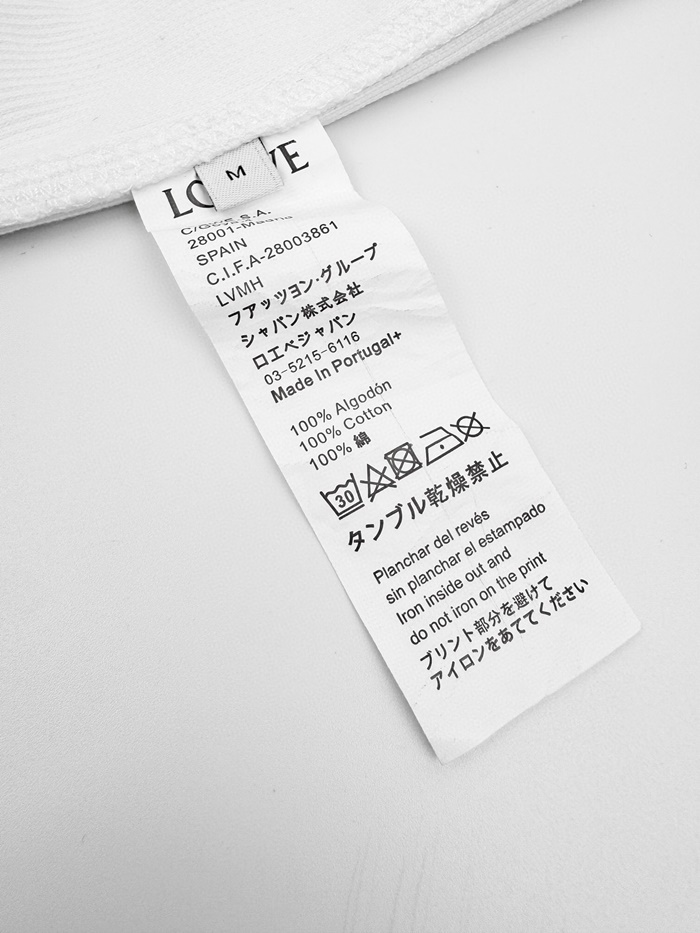 LOEWE
M
S.A.
28001-Madrid
SPAIN
C.I.F.A-28003861
LVMH
フアッツョン·グループ
シャパン株式会社
ロエベジャパン
03-5215-6116
Made In Portugal+
100% Algodón
100% Cotton
100% 綿
30
タンブル乾燥禁止
Planchar del revés
sin planchar el estampado
Iron inside out and
do not iron on the print
ブリント部分を避けて
アイロンをあててください